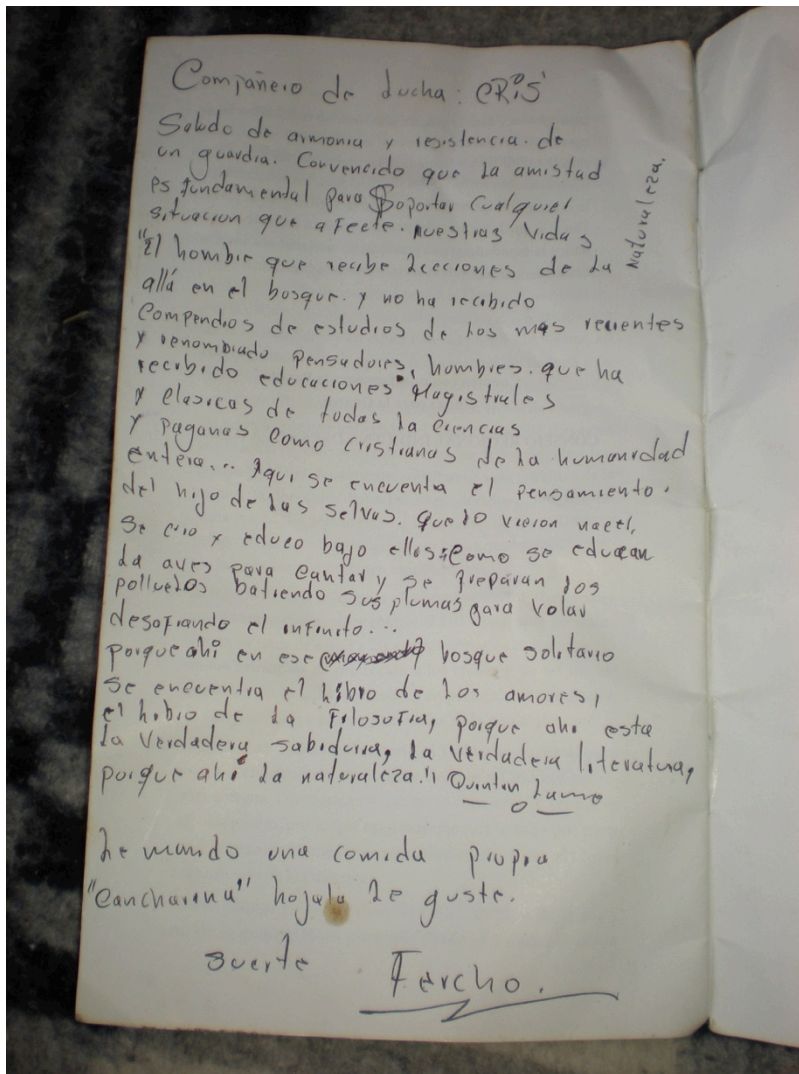 Compañero de ducha: CRiS
Saludo de armonia y resistencia. de
un guardia. Convencido que la amistad
es fundamental para Soportar cualquier
situacion que afecte. nuestras vidas
"El hombre que recibe Lecciones de La Naturaleza.
allá en el bosque. y no ha recibido
compendios de estudios de Los mas recientes
y renombrado pensadores, hombres. que ha
recibido educaciones Magistrales
y clasicas de todas la ciencias
y paganas como cristianas de la humanidad
entera... Aqui se encuentra el pensamiento.
del hijo de las selvas. que lo vieron nacer,
se crio y educo bajo ellas; como se educan
La aves para cantar y se preparan los
polluelos batiendo sus plumas para volar
desafiando el infinito...
porque ahi en ese bosque solitario
se encuentra el Libro de Los amores,
el Libro de La Filosofia, porque ahi esta
La verdadera sabiduria, La verdadera literatura,
porque ahi La naturaleza." Quintin Lame
Le mando una comida propia
"Cancharina" hojala Le guste.
suerte Fercho.